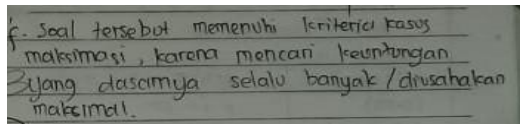 f. Soal tersebut memenuhi kriteria kasus
maksimasi, karena mencari keuntungan
yang dasarnya selalu banyak / diusahakan
maksimal.